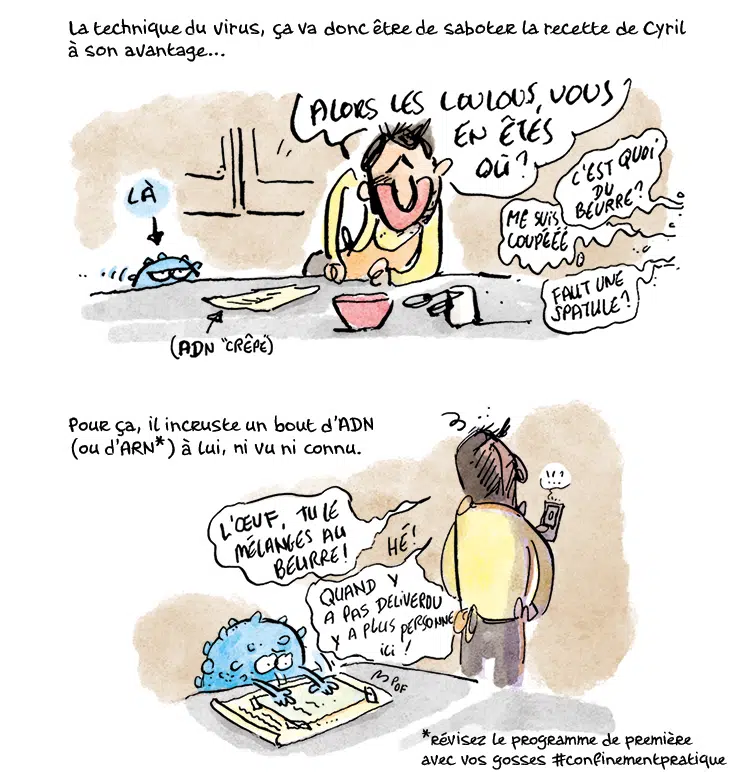 La technique du virus, ça va donc être de saboter la recette de Cyril
à son avantage...
ALORS LES LOULOUS, VOUS
EN ÊTES
OÙ ?
LÀ
C'EST QUOI
DU
BEURRE ?
ME SUIS
COUPÉÉÉ
FAUT UNE
SPATULE ?
(ADN "CRÊPE")
Pour ça, il incruste un bout d'ADN
(ou d'ARN*) à lui, ni vu ni connu.
!!?
L'ŒUF, TU LE
MÉLANGES AU
BEURRE !
HÉ !
QUAND Y
A PAS DELIVEROU
Y A PLUS PERSONNE
ici !
POF
*révisez le programme de première
avec vos gosses #confinementpratique